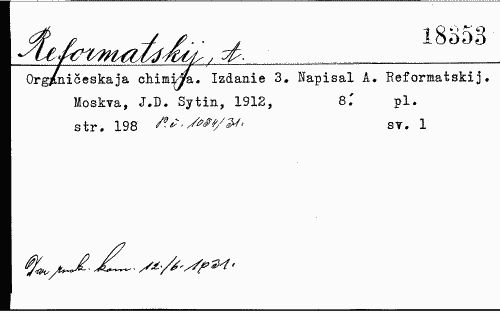 Reformatskij, A.
18353
Organičeskaja chimija. Izdanie 3. Napisal A. Reformatskij.
Moskva, J.D. Sytin, 1912, 8.° pl.
str. 198 P.č. 1084/31. sv. 1
Dar rusk. kom. 12./6. 1931.